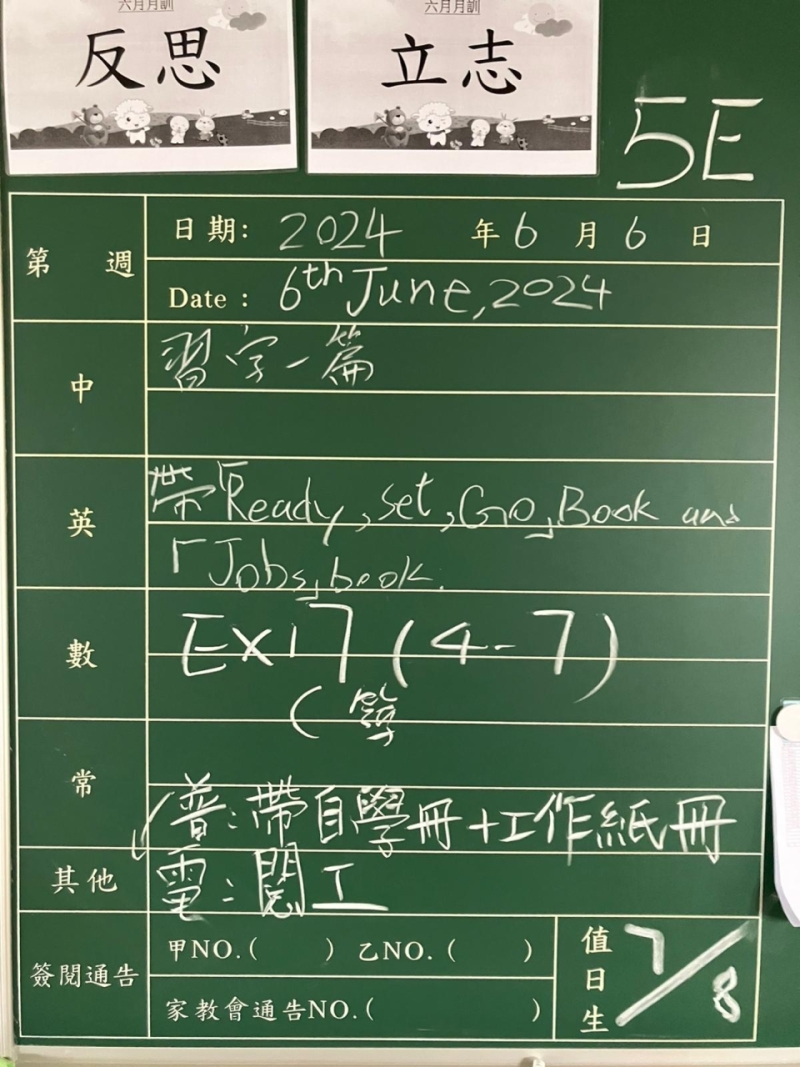 六月月訓
反思
六月月訓
立志
5E
第 週
日期: 2024 年 6 月 6 日
Date : 6th June, 2024
中
習字一篇
英
帶「Ready, set, Go」Book and
「Jobs」book.
數
Ex17 (4-7)
(
常
普:帶自學冊+工作紙冊
其他
電:閱工
簽閱通告
甲NO.( ) 乙NO.( )
家教會通告NO.( )
值日生
7/8